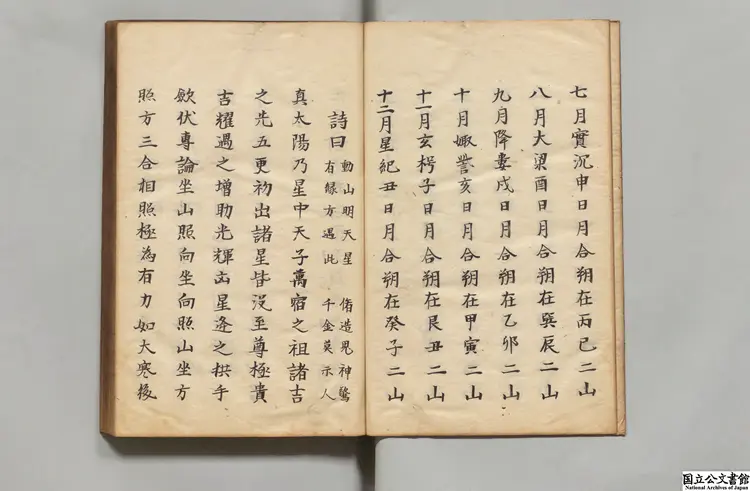 七月實沉申日月合朔在丙巳二山
八月大梁酉日月合朔在巽辰二山
九月降婁戌日月合朔在乙卯二山
十月娵訾亥日月合朔在甲寅二山
十一月玄枵子日月合朔在艮丑二山
十二月星紀丑日月合朔在癸子二山
詩曰 動山明天星 偹造鬼神驚
有緣方遇此 千金莫示人
真太陽乃星中天子萬宿之祖諸吉
之先五更初出諸星皆沒至尊極貴
吉耀遇之增助光輝凶星逢之拱手
歛伏專論坐山照向坐向照山坐方
照方三合相照極為有力如大寒後
国立公文書館
National Archives of Japan